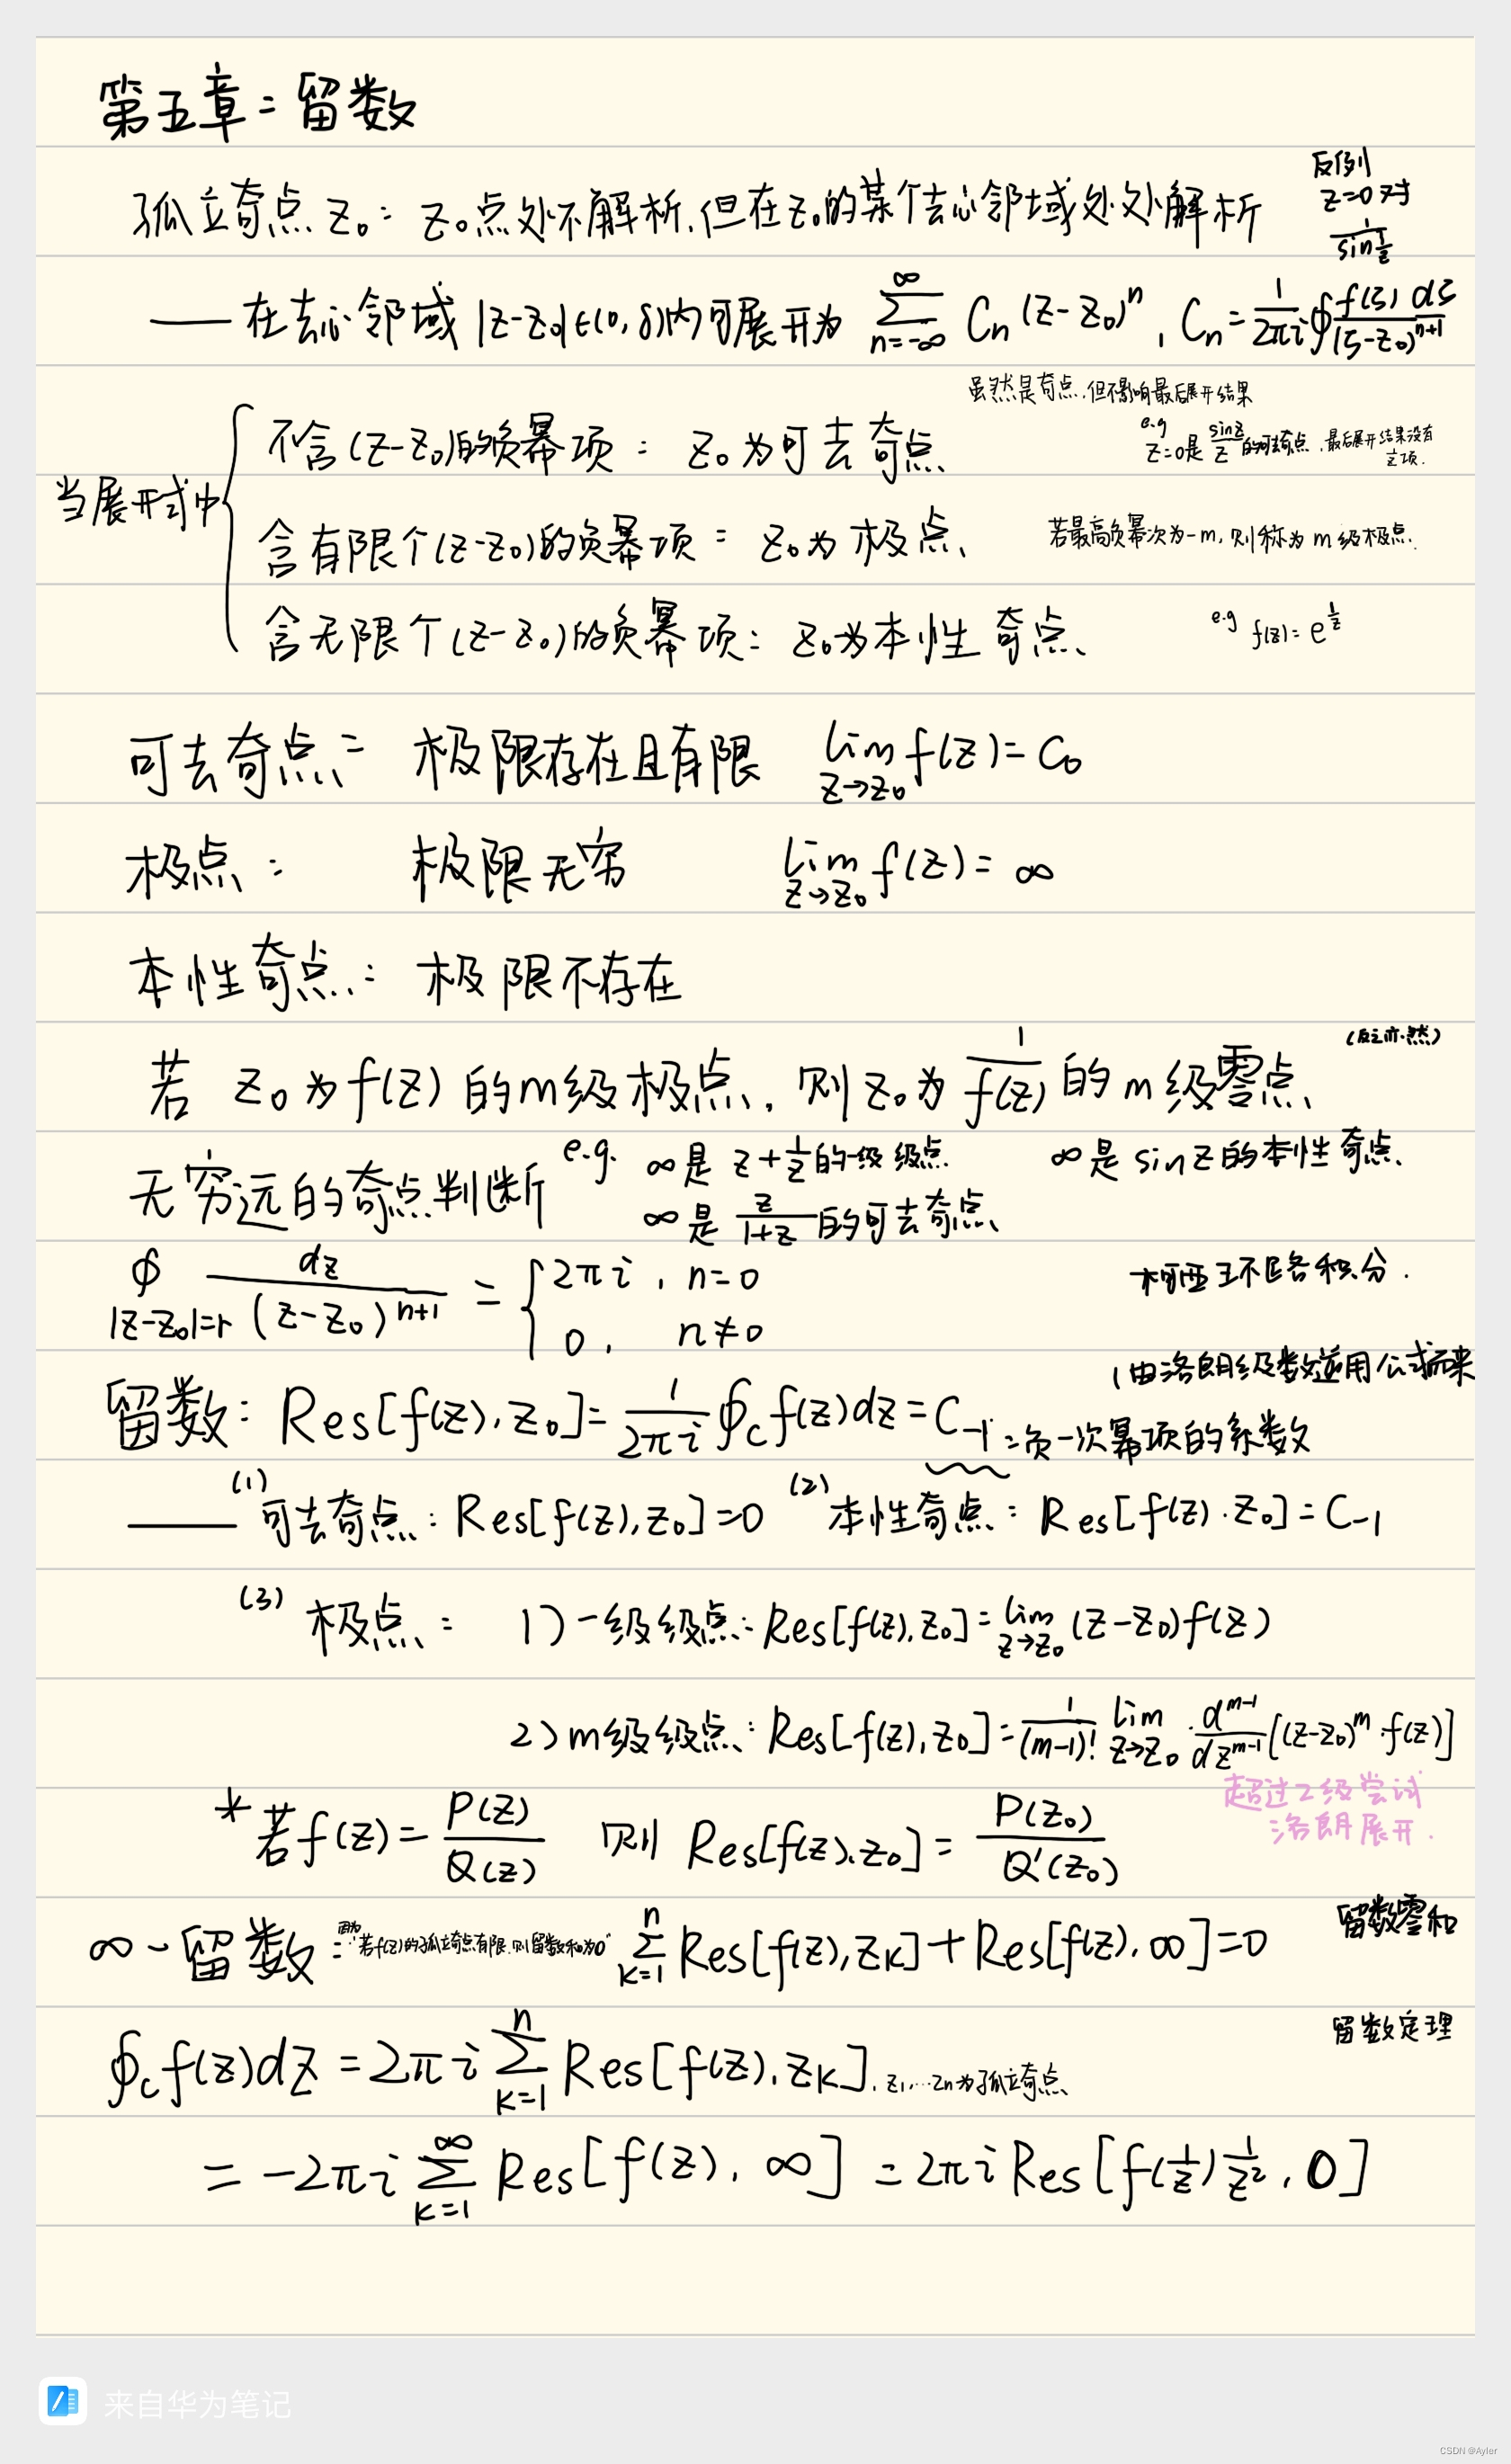 第五章：留数
反例
z=0 对
1/sin(1/z)
孤立奇点 z₀：z₀点处不解析，但在z₀的某个去心邻域处处解析
—— 在去心邻域 |z-z₀|∈(0,δ)内可展开为 ∑_{n=-∞}^{∞} Cₙ(z-z₀)ⁿ，Cₙ = 1/(2πi) ∮ f(ζ)dζ/(ζ-z₀)ⁿ⁺¹
虽然是奇点，但不影响最后展开结果
当展开式中
不含(z-z₀)的负幂项：z₀为可去奇点
e.g z=0是 sinz/z 的可去奇点，最后展开结果没有
这项.
含有限个(z-z₀)的负幂项：z₀为极点
若最高负幂次为-m，则称为m级极点.
含无限个(z-z₀)的负幂项：z₀为本性奇点
e.g f(z)=e^{1/z}
可去奇点：极限存在且有限 lim_{z→z₀} f(z)=C₀
极点：极限无穷 lim_{z→z₀} f(z)=∞
本性奇点：极限不存在
(反之亦然)
若 z₀为f(z)的m级极点，则z₀为 1/f(z) 的m级零点
无穷远的奇点判断 e.g. ∞是 z+1/z 的一级级点 ∞是 sin z 的本性奇点
∞是 z/(1+z) 的可去奇点
∮_{|z-z₀|=r} dz/(z-z₀)ⁿ⁺¹ = { 2πi, n=0
0, n≠0
柯西王不区各积分.
(由洛朗级数逆用公式而来
留数：Res[f(z),z₀]= 1/(2πi) ∮_C f(z)dz = C₋₁：负一次幂项的系数
—— (1) 可去奇点：Res[f(z),z₀]=0 (2) 本性奇点：Res[f(z).z₀]=C₋₁
(3) 极点： 1)一级级点：Res[f(z),z₀]=lim_{z→z₀}(z-z₀)f(z)
2)m级级点：Res[f(z),z₀]= 1/(m-1)! lim_{z→z₀} · d^{m-1}/dz^{m-1} [(z-z₀)^m·f(z)]
超过2级尝试
洛朗展开.
*若f(z)= P(z)/Q(z) 则 Res[f(z),z₀]= P(z₀)/Q'(z₀)
∞~留数：因为"若f(z)的孤立奇点有限，则留数和为0" ∑_{k=1}^{n} Res[f(z),z_k]+Res[f(z),∞]=0
留数零和
留数定理
∮_C f(z)dz = 2πi ∑_{k=1}^{n} Res[f(z),z_k]，z₁,…zₙ为孤立奇点
= -2πi ∑_{k=1}^{∞} Res[f(z),∞] = 2πi Res[f(1/z) 1/z², 0]
来自华为笔记
CSDN @Ayler